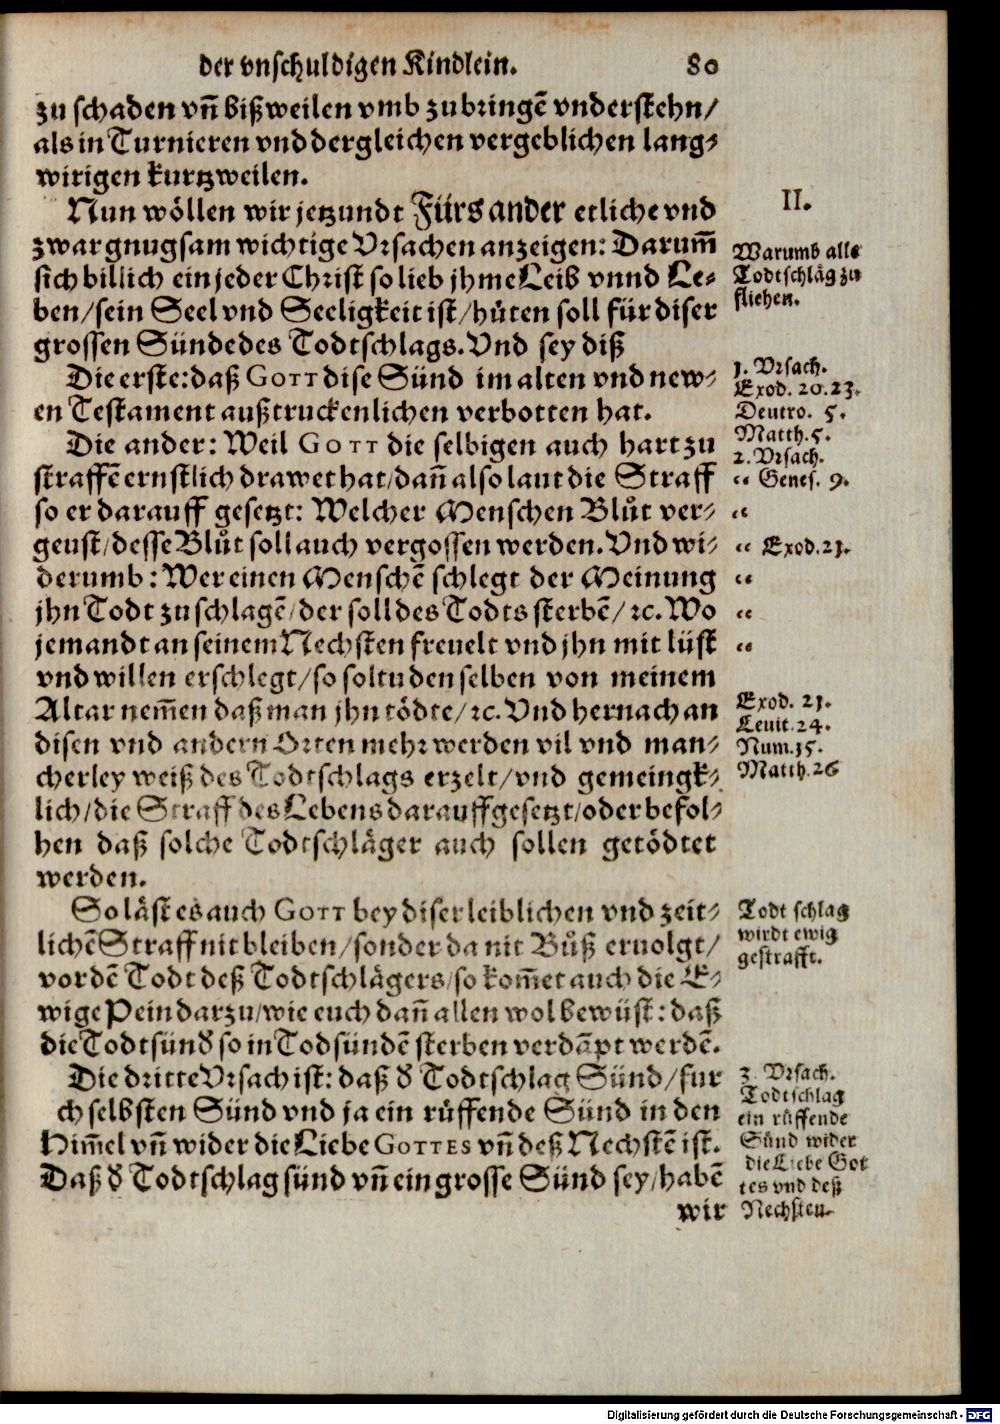 der vnschuldigen Kindlein. 80
zu schaden vñ bißweilen vmb zubringẽ vnderstehn/
als in Turnieren vnd dergleichen vergeblichen lang⸗
wirigen kurtzweilen.
Nun wöllen wir jetzundt Fürs ander etliche vnd
zwar gnugsam wichtige Vrsachen anzeigen: Darum̃
sich billich ein jeder Christ so lieb jhme Leib vnnd Le⸗
ben/sein Seel vnd Seeligkeit ist/hüten soll für diser
grossen Sünde des Todtschlags. Vnd sey diß
Die erste: daß GOTT dise Sünd im alten vnd new⸗
en Testament außtruckenlichen verbotten hat.
Die ander: Weil GOTT die selbigen auch hart zu
straffẽ ernstlich drawet hat/dañ also laut die Straff
so er darauff gesetzt: Welcher Menschen Blůt ver⸗
geust/desse Blůt soll auch vergossen werden. Vnd wi⸗
derumb: Wer einen Menschẽ schlegt der Meinung
jhn Todt zu schlagẽ/der soll des Todts sterbẽ/ꝛc. Wo
jemandt an seinem Nechsten freuelt vnd jhn mit lüst
vnd willen erschlegt/so soltu denselben von meinem
Altar nem̃en daß man jhn tödte/ꝛc. Vnd hernach an
disen vnd andern Orten mehr werden vil vnd man⸗
cherley weiß des Todtschlags erzelt/vnd gemeingk⸗
lich/die Straff des Lebens darauff gesetzt/oder befol⸗
hen daß solche Todtschläger auch sollen getödtet
werden.
So läst es auch GOTT bey diser leiblichen vnd zeit⸗
lichẽ Straff nit bleiben/sonder da nit Bůß eruolgt/
vor dẽ Todt deß Todtschlägers/so kom̃et auch die E⸗
wige Pein darzu/wie euch dañ allen wol bewüst: daß
die Todtsünd so in Todsündẽ sterben verdãpt werdẽ.
Die dritte Vrsach ist: daß d Todtschlag Sünd/fur
ch selbsten Sünd vnd ja ein rüffende Sünd in den
Him̃el vñ wider die Liebe GOTTES vñ deß Nechstẽ ist.
Daß d Todtschlag sünd vñ ein grosse Sünd sey/habẽ
wir
II.
Warumb alle
Todtschläg zu
fliehen.
1. Vrsach.
Exod. 20. 23.
Deutro. 5.
Matth. 5.
2. Vrsach.
“ Genes. 9.
“
“ Exod. 21.
“
“
“
Exod. 21.
Leuit. 24.
Num. 35.
Matth. 26
Todt schlag
wirdt ewig
gestrafft.
3. Vrsach.
Todtschlag
ein rüffende
Sünd wider
die Liebe Got
tes vnd deß
Nechsten.
Digitalisierung gefördert durch die Deutsche Forschungsgemeinschaft - DFG